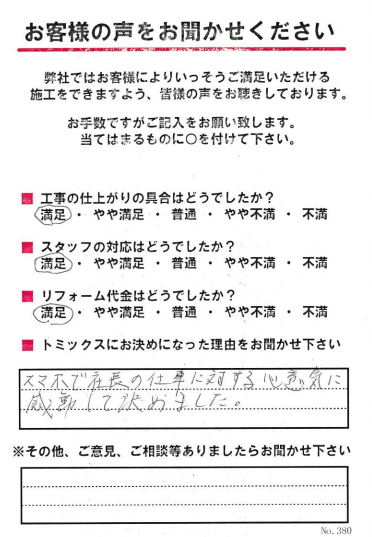 お客様の声をお聞かせください
弊社ではお客様によりいっそうご満足いただける
施工をできますよう、皆様の声をお聴きしております。
お手数ですがご記入をお願い致します。
当てはまるものに○を付けて下さい。
■ 工事の仕上がりの具合はどうでしたか？
満足 ・ やや満足 ・ 普通 ・ やや不満 ・ 不満
■ スタッフの対応はどうでしたか？
満足 ・ やや満足 ・ 普通 ・ やや不満 ・ 不満
■ リフォーム代金はどうでしたか？
満足 ・ やや満足 ・ 普通 ・ やや不満 ・ 不満
■ トミックスにお決めになった理由をお聞かせ下さい
スマホで社長の仕事に対する心意気に
感動して決めました。
※その他、ご意見、ご相談等ありましたらお聞かせ下さい
No. 380